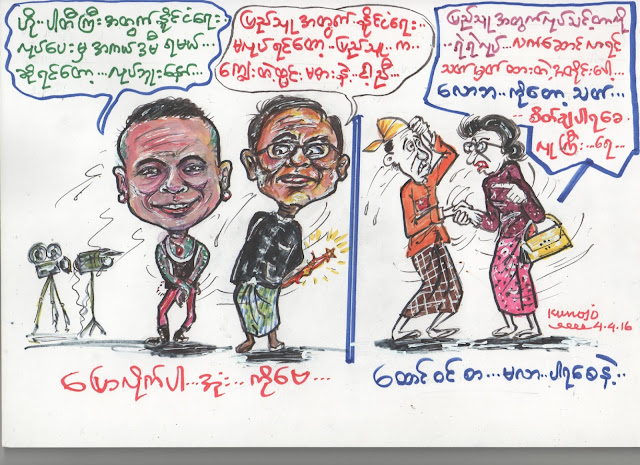 ဟို..ပါတီကြီးအတွက် နိုင်ငံရေး..
လုပ်ပေးမှ အကယ်ဒမီ ရမယ်...
ဆိုရင်တော့...လုပ်ဘူးနော်...
ပြည်သူ့အတွက် နိုင်ငံရေး..
မလုပ်ရင်တော့..ပြည်သူ..က..
ပြည်သူ့အတွက်လုပ်သင့်တာကို
..ရဲရဲလုပ်...လက်ဆောင်လာရင်
သတ်မှတ်ထားတဲ့အတိုင်းပေါ့...
စိတ်ချပါရစေ
လူကြီး..ရေ...
Kunojo
4.4.16
ပြောလိုက်ပါ...အုံး...ကိုမေ...
ထောင်ဝင်စာ...မလာ..ပါရစေနဲ့..